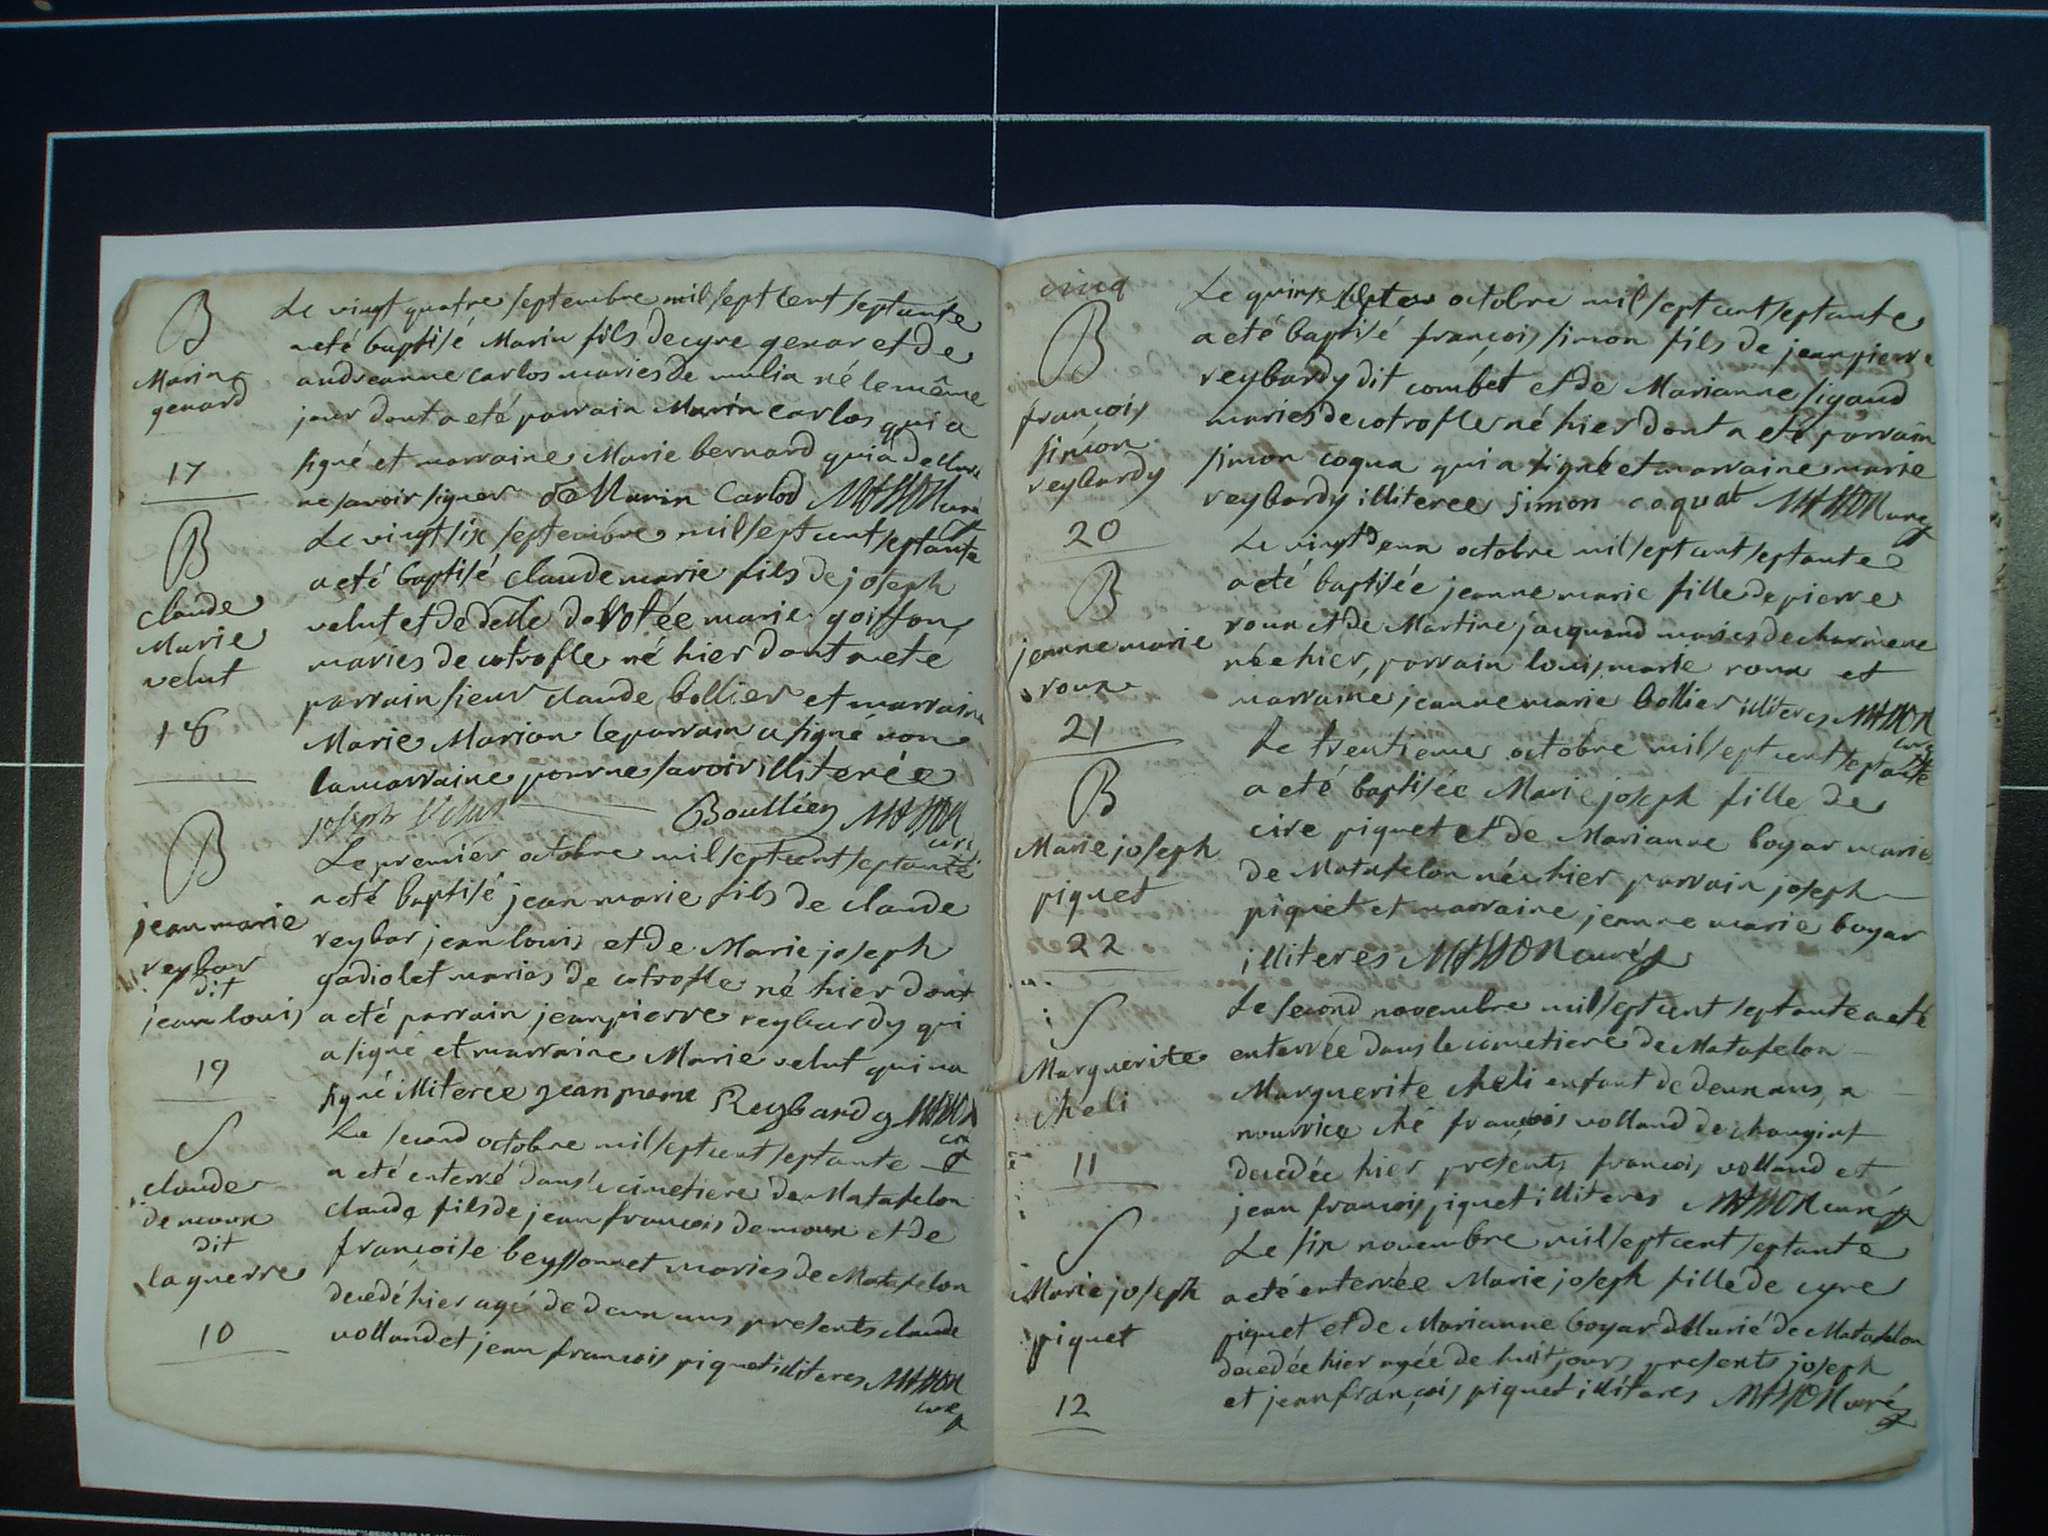 B
Marin
genard
17
Le vingt quatre septembre mil sept cent septante
a eté baptisé Marin fils de cyre genar et de
andreanne carlos maries de mulia né le même
jour dont a eté parrain Marin carlos qui a
signé et marraine Marie bernard qui a declaré
ne savoir signer Marin Carlod MASSON curé
B
claude
Marie
velut
18
Le vingt six septembre mil sept cent septante
a eté baptisé claude marie fils de joseph
velut et de delle marie goiffon
maries de cotrofle né hier dont a eté
parrain sieur claude bollier et marraine
Marie Marion le parrain a signé non
la marraine pour ne savoir illiterée
joseph Velut Boullier MASSON
curé
B
jean marie
reybar
dit
jean louis
19
Le premier octobre mil sept cent septante
a eté baptisé jean marie fils de claude
reybar jean louis et de Marie joseph
gadiolet maries de cotrofle né hier dont
a eté parrain jean pierre reybardy qui
a signé et marraine Marie velut qui na
signé illiteree jean pierre Reybardy MASSON
curé
S
claude
demoux
dit
laguerre
10
Le second octobre mil sept cent septante
a eté enterré dans le cimetiere de Matafelon
claude fils de jean françois demoux et de
françoise beyssonnet maries de Matafelon
decedé hier agé de deux ans presents claude
volland et jean francois piquet illiteres MASSON
curé
cinq
B
françois
simon
reybardy
20
Le quinze octobre mil sept cent septante
a eté baptisé françois simon fils de jean pierre
reybardy dit combet et de Marianne sigaud
maries de cotrofle né hier dont a eté parrain
simon coqua qui a signé et marraine marie
reybardy illiteree simon coquat MASSON curé
B
jeanne marie
roux
21
Le vingt deux octobre mil sept cent septante
a eté baptisée jeanne marie fille de pierre
roux et de Martine jacquand maries de charmene
née hier, parrain louis marie roux et
marraine jeanne marie bollier illiteres MASSON
curé
B
Marie joseph
piquet
22
Le trentieme octobre mil sept cent septante
a eté baptisée Marie joseph fille de
cire piquet et de Marianne boyar maries
de Matafelon née hier parrain joseph
piquet et marraine jeanne marie boyar
illiteres MASSON curé
S
Marguerite
cheli
11
Le second novembre mil sept cent septante a eté
enterrée dans le cimetiere de Matafelon
Marguerite cheli enfant de deux ans, a
nourrice ché françois volland de changint
decedée hier presents françois volland et
jean françois piquet illiteres MASSON curé
S
Marie joseph
piquet
12
Le six novembre mil sept cent septante
a eté enterrée Marie joseph fille de cyre
piquet et de Marianne boyar Marié de Matafelon
decedée hier agée de huit jours presents joseph
et jean françois piquet illiteres MASSON curé